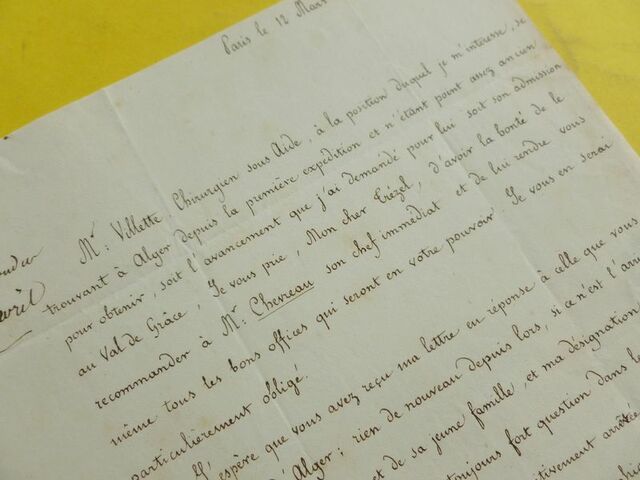 Paris le 12 Mars
Mr. Villette, Chirurgien sous Aide, à la position duquel je m'intéresse, se
trouvant à Alger depuis la première expédition et n'étant point assez ancien
pour obtenir, soit l'avancement que j'ai demandé pour lui soit son admission
au Val de Grâce, Je vous prie, Mon cher Trézel, d'avoir la bonté de le
recommander à Mr. Chevreau son chef immédiat et de lui rendre vous
même tous les bons offices qui seront en votre pouvoir. Je vous en serai
particulièrement obligé.
J'espère que vous avez reçu ma lettre en réponse à celle que vous
d'Alger: rien de nouveau depuis lors, si ce n'est l'arri
et de sa jeune famille, et ma désignation
toujours fort question dans le
arrêtée
avril